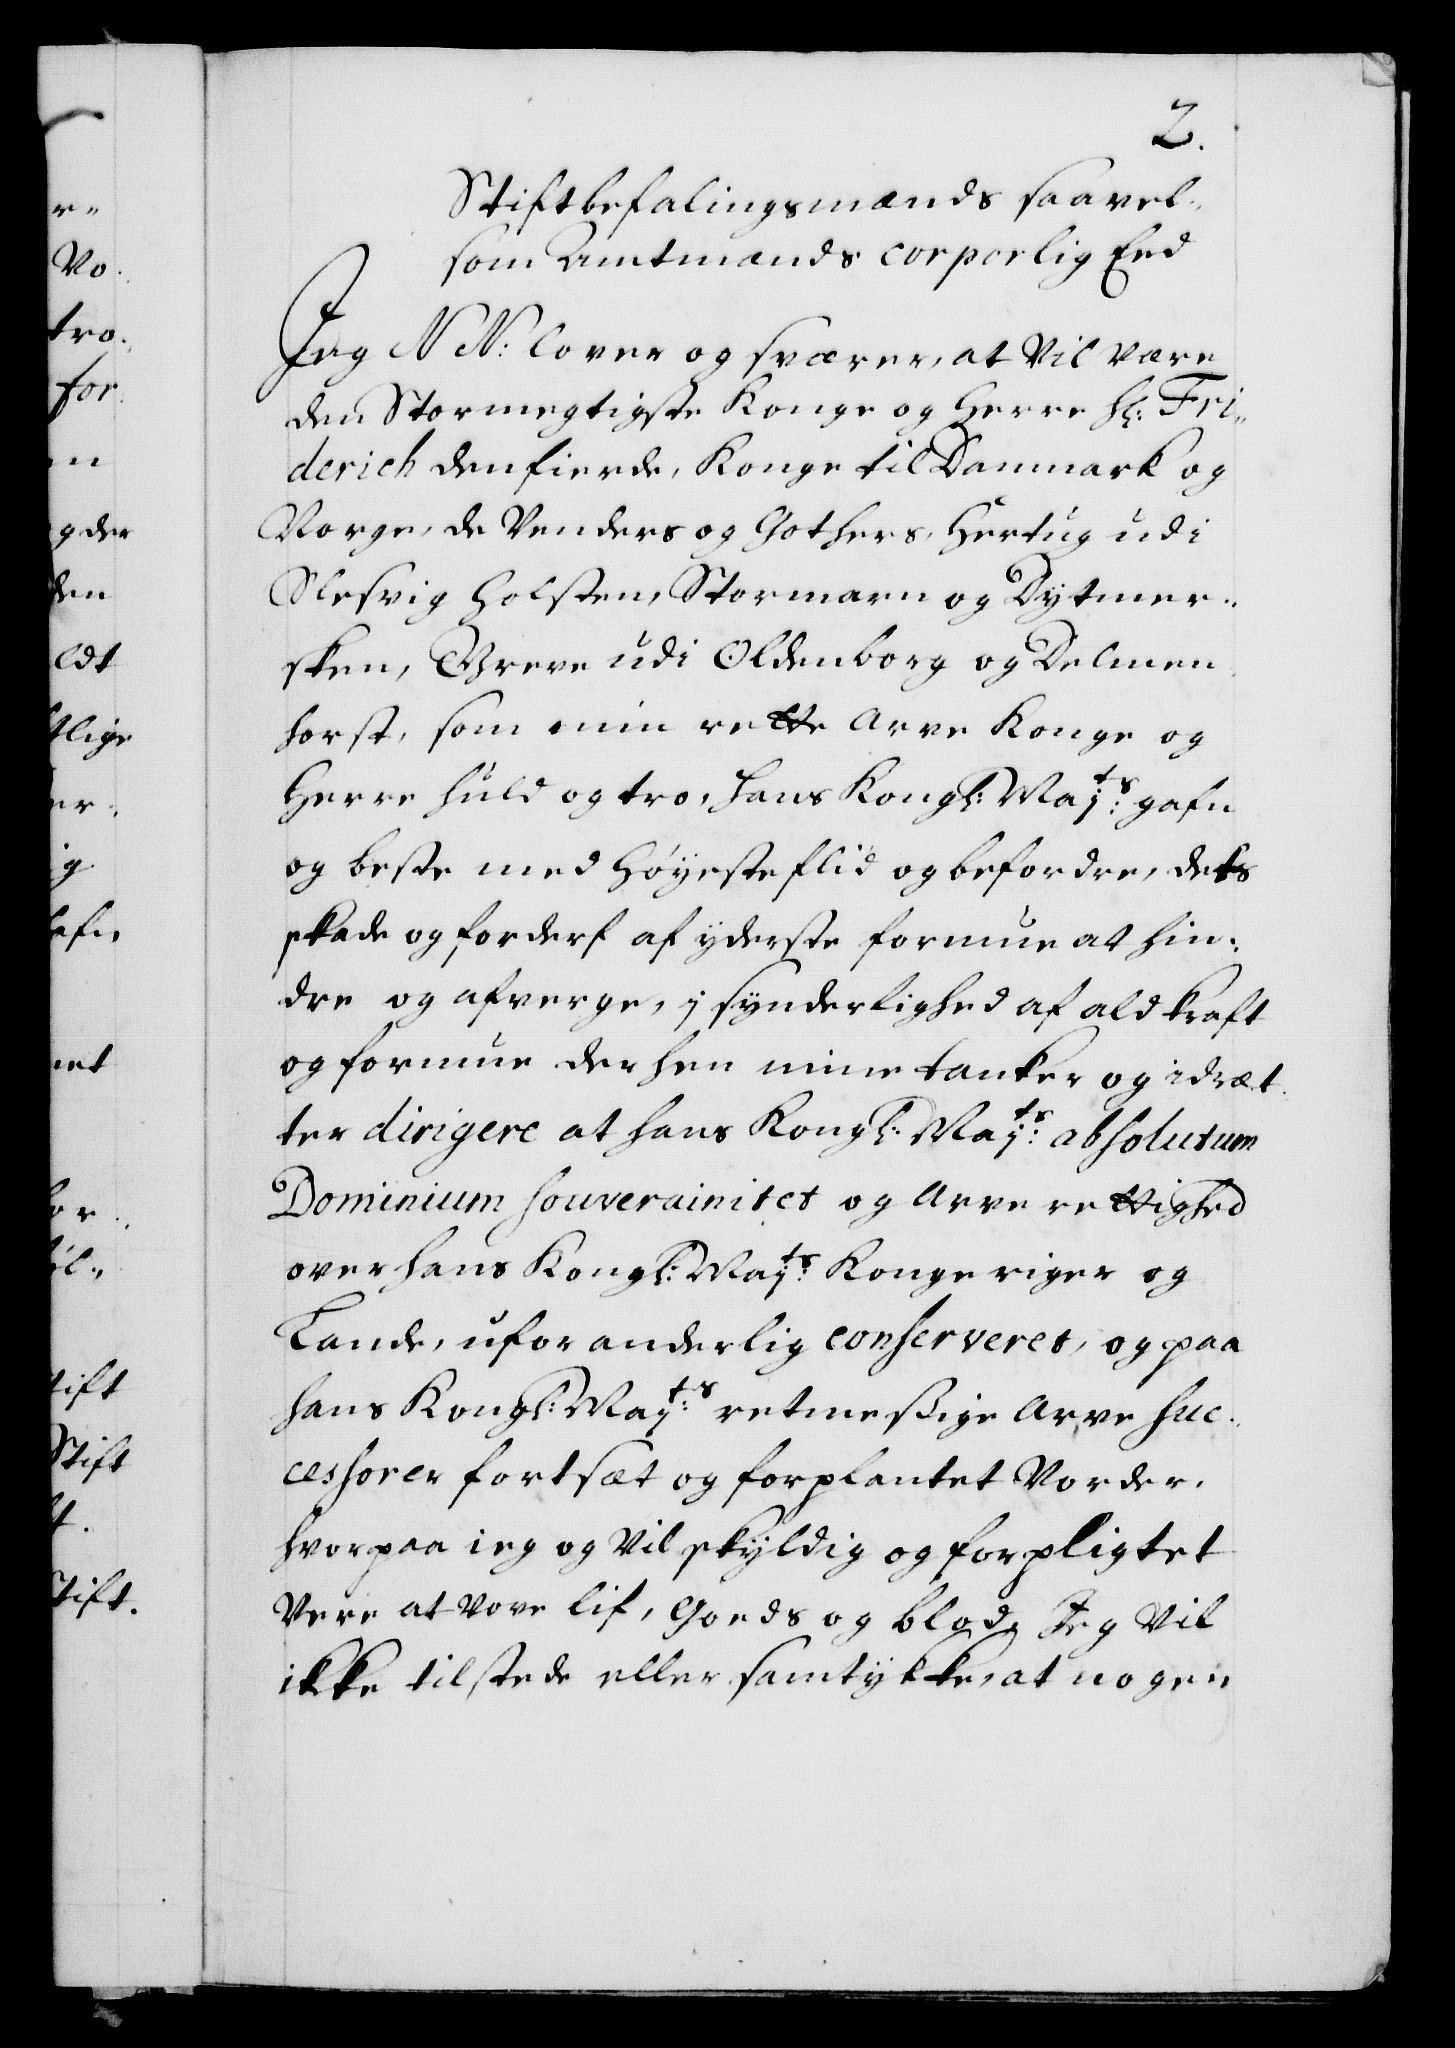 2.
Stiftbefalingsmænds saavel„
som Amtmænds corporlig Eed
Jeg N N: lover og sværer, at vil være
den Stormegtigste Konge og Herre Hr: Fri„
derich den fierde, Konge til Danmark og
Norge, de Venders og Gothers, Hertug udi
Slesvig Holsten, Stormarn og Dytmer„
sken, Greve udi Oldenborg og Delmen„
horst, som min rette Arve Konge og
Herre huld og tro, hans Kongl: Maj:ts gafn
og beste med høyeste flid og befordre, dets
skade og forderf af yderste formue at hin„
dre og afverge, j synderlighed af ald kraft
og formue der hen mine tanker og idræt„
ter dirigere at hans Kongl: Maj:ts absolutum
Dominium souverainitet og Arve rettighed
over hans Kongl: Maj:ts Kongeriger og
Lande, uforanderlig conserveret, og paa
hans Kongl: Maj:ts retmessige Arve suc„
cessorer fortsæt og forplantet vorder.
hvorpaa ieg og vil skyldig og forpligtet
vere at vove lif, Goeds og blod, Jeg vil
ikke tilstede eller samtykke, at nogen
r„
Vo„
tro.
for
en
g der
den
ldt
tlige
er„
ig
afn
net
or„
øl„
tift
Stift
t.
Stift.